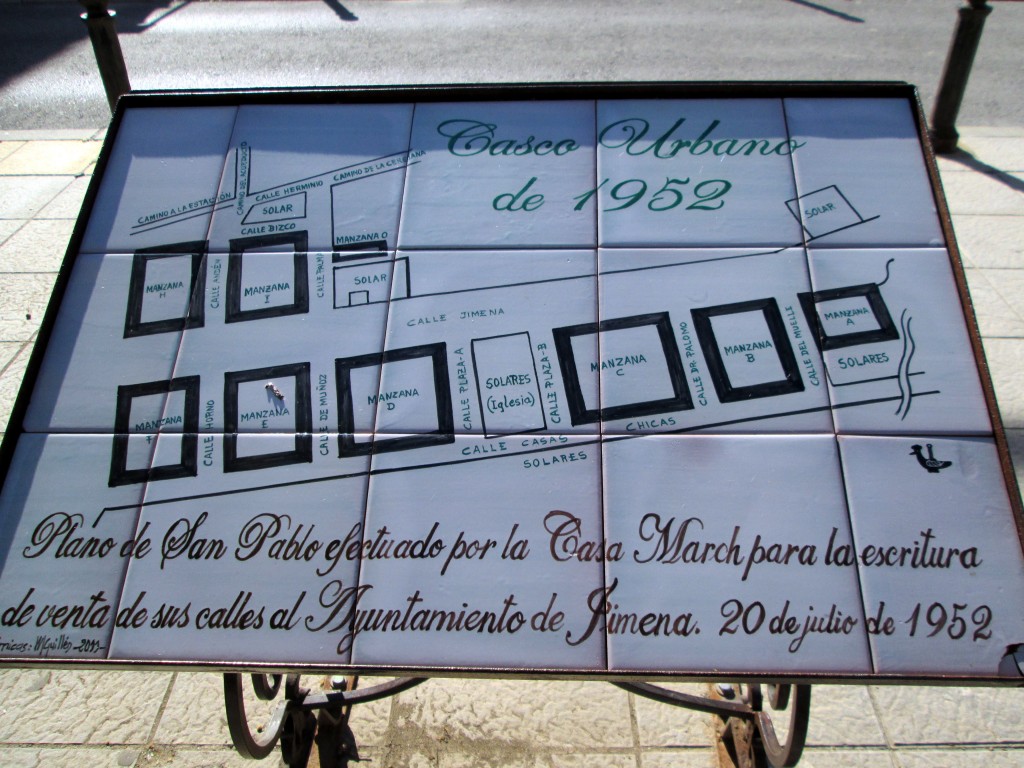 Casco Urbano
de 1952
CAMINO A LA ESTACIÓN
CAMINO DEL ACUEDUCTO
CALLE HERMINIO
CAMINO DE LA
SOLAR
CALLE BIZCO
MANZANA O
SOLAR
SOLAR
MANZANA
H
CALLE ANDÉN
MANZANA
I
CALLE PALMA
CALLE JIMENA
MANZANA
F
CALLE HORNO
MANZANA
E
CALLE DE MUÑOZ
MANZANA
D
CALLE PLAZA-A
SOLARES
(Iglesia)
CALLE PLAZA-B
MANZANA
C
CALLE DR. PALOMO
MANZANA
B
CALLE DEL MUELLE
MANZANA
A
SOLARES
CALLE CASAS CHICAS
SOLARES
Plano de San Pablo efectuado por la Casa March para la escritura
de venta de sus calles al Ayuntamiento de Jimena. 20 de julio de 1952
MGuillén -2013-